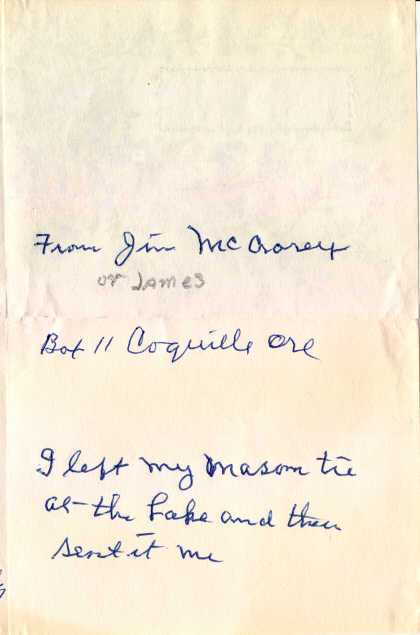 From Jim McCrorey
or James
Box 11 Coquille Ore
I left my Mason tie
at the Lake and then
sent it me